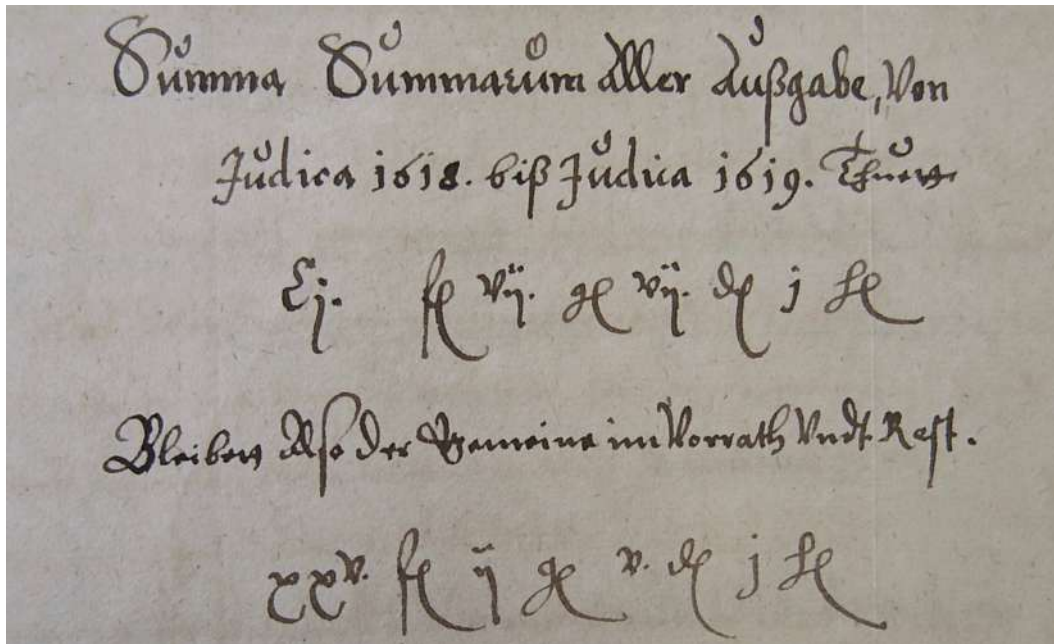 Summa Summarum Aller Außgabe, Von
Judica 1618. biß Judica 1619. Thuet
Cj. fl vij. gl vij. dl j hl
Bleiben Also der Gemeine im Vorrath Vndt Rest.
xxv. fl ij gl v. dl j hl